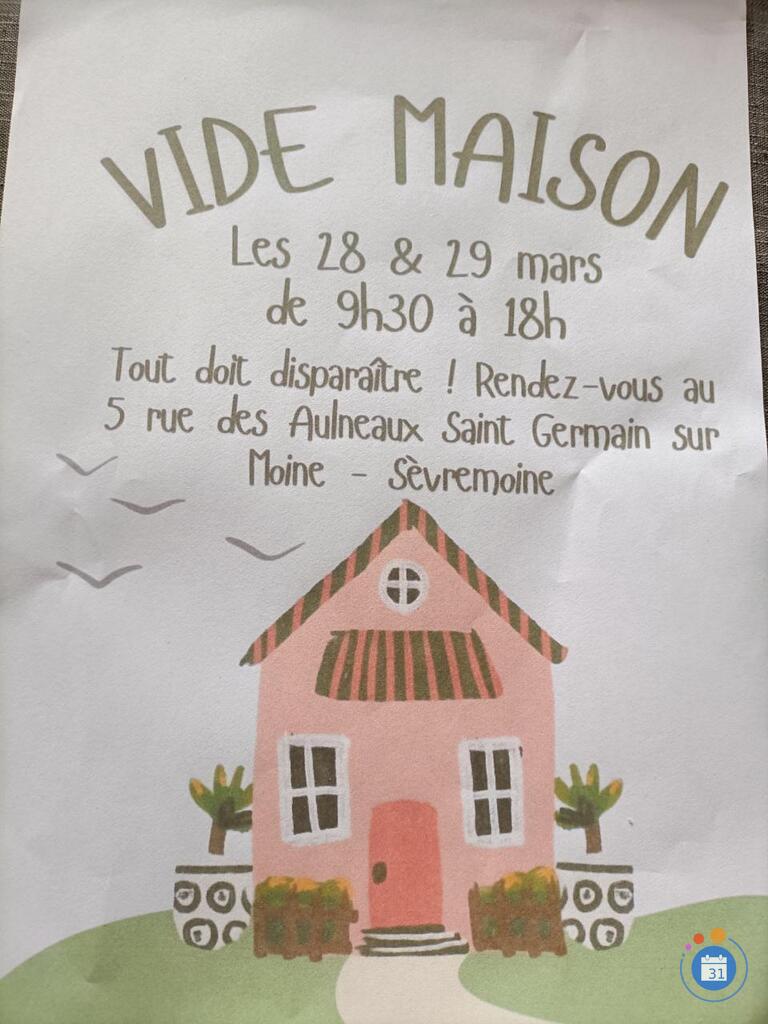 VIDE MAISON
Les 28 & 29 mars
de 9h30 à 18h
Tout doit disparaître ! Rendez-vous au
5 rue des Aulneaux Saint Germain sur
Moine - Sèvremoine
31